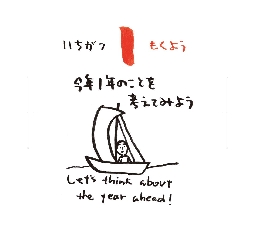 いちがつ 1 もくよう
今年1年のことを
考えてみよう
Let's think about
the year ahead!